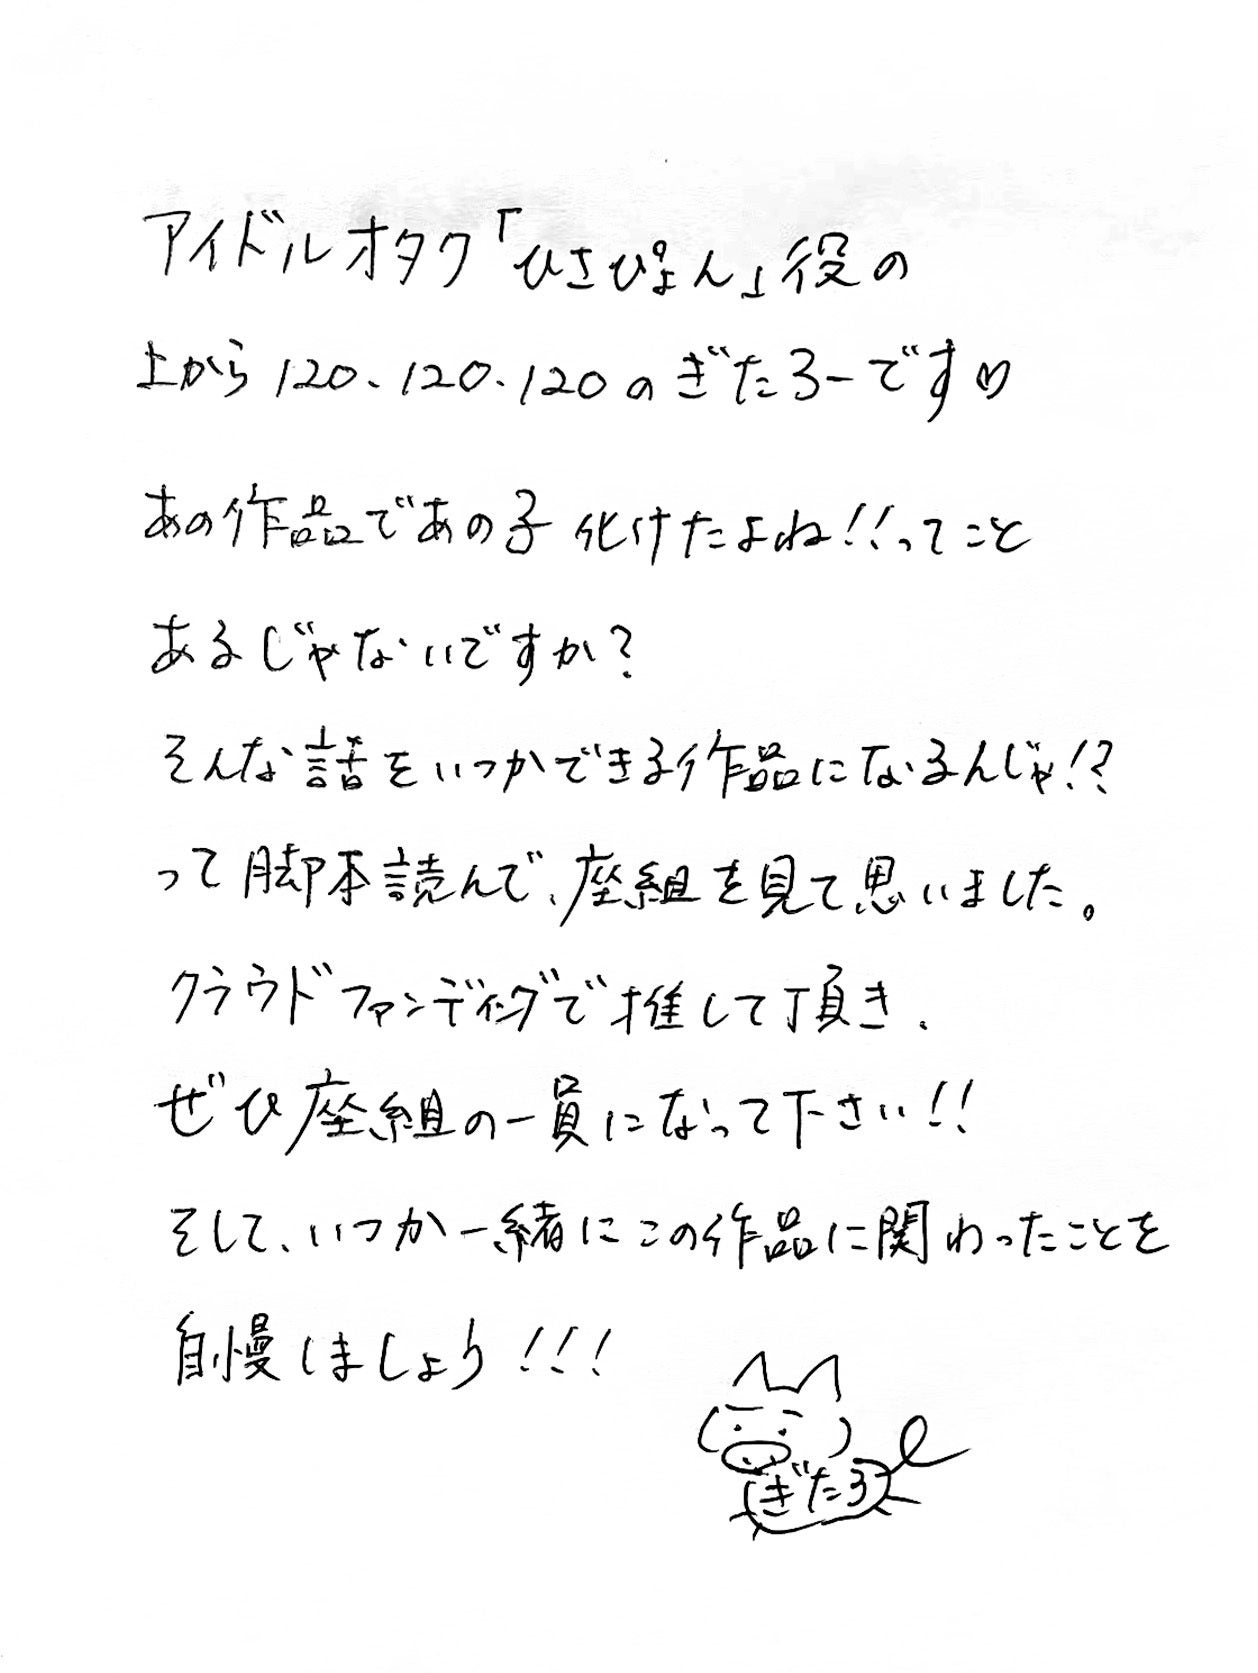 アイドルオタク「ひさぴょん」役の
上から120、120、120のぎたろーです♡
あの作品であの子化けたよね!!ってこと
あるじゃないですか?
そんな話をいつかできる作品になるんじゃ!?
って脚本読んで、座組を見て思いました。
クラウドファンディングで推して頂き、
ぜひ座組の一員になって下さい!!
そして、いつか一緒にこの作品に関わったことを
自慢しましょう!!!
ぎたろ